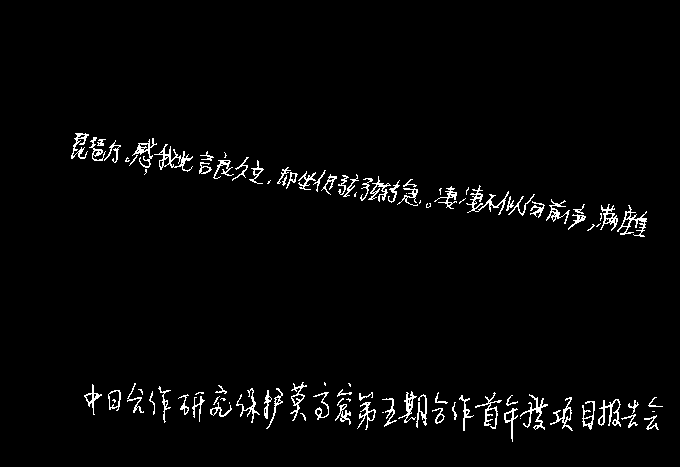 琵琶行。感我此言良久立,却坐促弦弦转急。凄凄不似向前声,满座重
中日合作研究保护莫高窟第五期合作首年度项目报告会